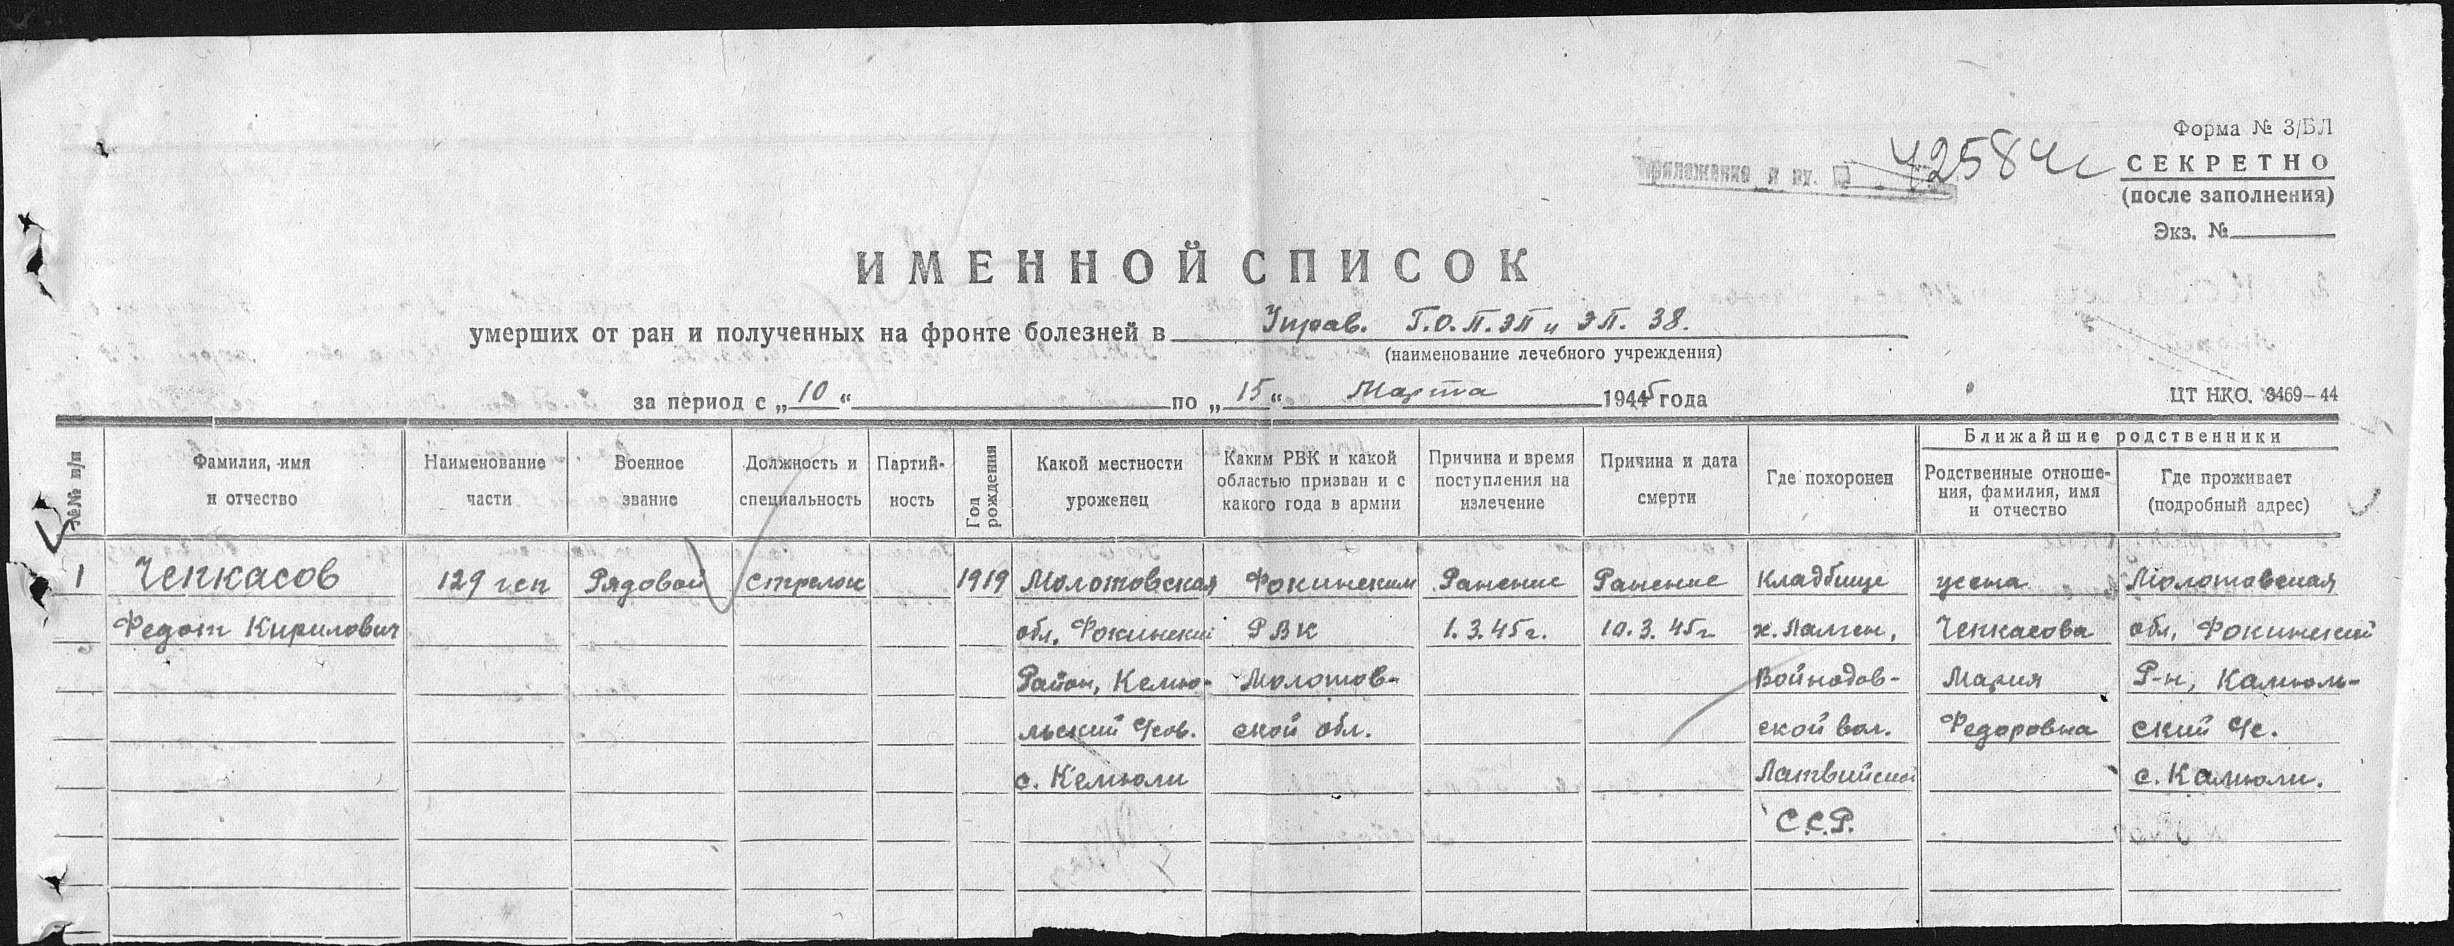 Форма № 3/БЛ
Приложение к вх. 42584с
СЕКРЕТНО
(после заполнения)
Экз. №
ИМЕННОЙ СПИСОК
умерших от ран и полученных на фронте болезней в Управ. Г.О.П.ЭП и ЭП. 38.
(наименование лечебного учреждения)
за период с „10“ по „15“ Марта 1945 года
ЦТ НКО. 3469—44
№№ п/п
Фамилия, имя и отчество
Наименование части
Военное звание
Должность и специальность
Партийность
Год рождения
Какой местности уроженец
Каким РВК и какой областью призван и с какого года в армии
Причина и время поступления на излечение
Причина и дата смерти
Где похоронен
Ближайшие родственники
Родственные отношения, фамилия, имя и отчество
Где проживает (подробный адрес)
1 Чепкасов 129 гсп Рядовой Стрелок 1919 Молотовская Фокинским Ранение Ранение Кладбище жена Молотовская
Федот Кирилович обл. Фокинский РВК 1.3.45г. 10.3.45г х. Чепкасова обл. Фокинский
Район, Келью- Молотов- Мария Р-н,
льский с/сов. ской обл. ской вол. Федоровна ский с/с.
с. Латвийской с.
С.С.Р.